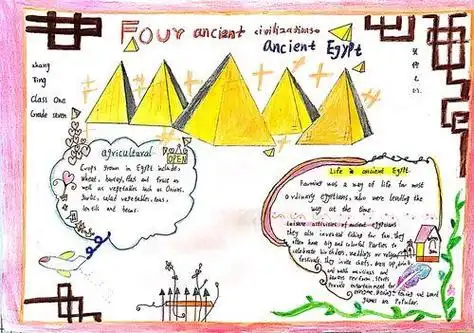 Four ancient civilizations
Ancient Egypt
Zhang
Ting
Class One
Grade seven
agricultural
OPEN
Crops grown in Egypt include
wheat, barley, flax and fruit as
well as vegetables such as Onions,
Garlic, salad vegetables, peas,
lentils and beans.
Life in ancient Egypt
Farming was a way of life for most
ordinary egyptians, who were tending the
way at the time.
Leisure activities of ancient egyptians
they also invented fishing for fun, they
often have big and colorful Parties to
celebrate birthdays, weddings or religious
festivals, they invite chefs,
and with musicians and
dancers perform
Provide entertainment for
everyone, and board
games are Popular.